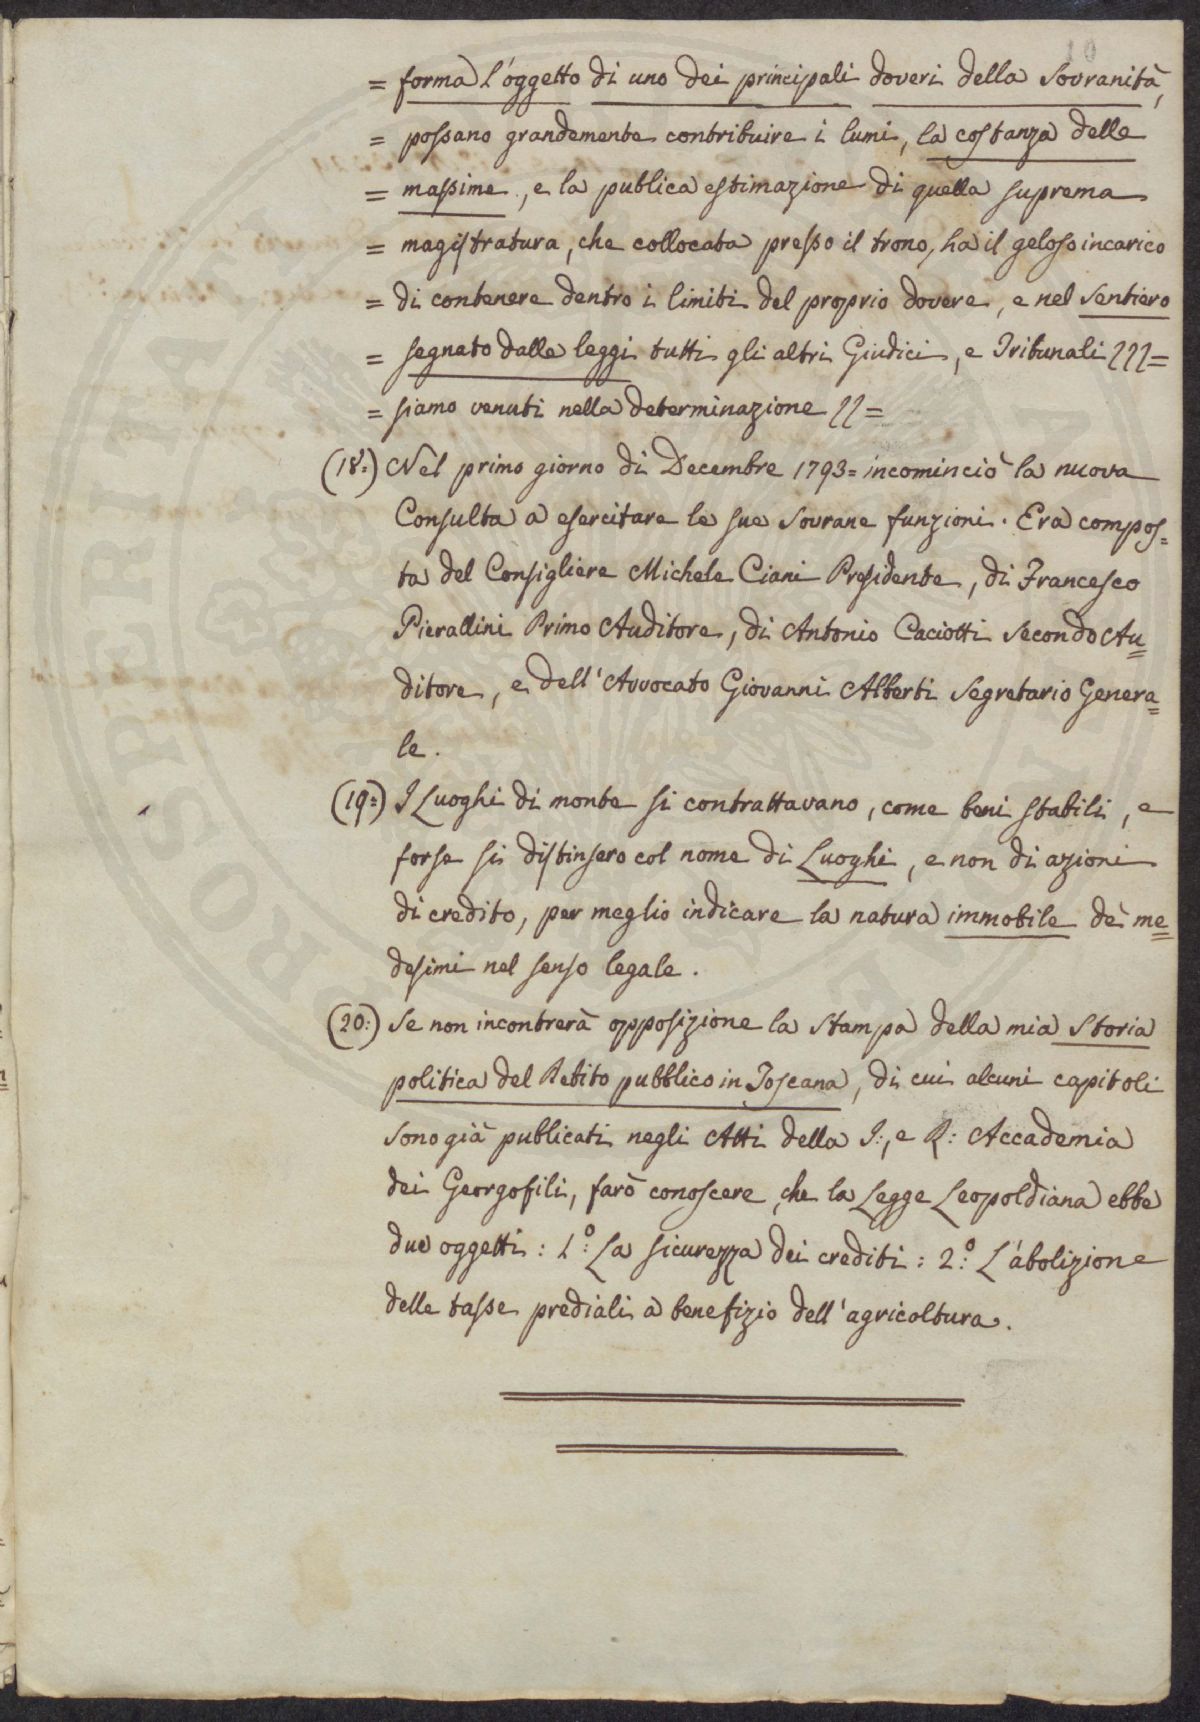 10
= forma l'oggetto di uno dei principali doveri della Sovranità,
= possano grandemente contribuire i lumi, la costanza delle
= massime, e la publica estimazione di quella suprema
= magistratura, che collocata presso il trono, ha il geloso incarico
= di contenere dentro i limiti del proprio dovere, e nel sentiero
= segnato dalle leggi tutti gli altri Giudici, e Tribunali ///=
= siamo venuti nella determinazione //=
(18:) Nel primo giorno di Decembre 1793= incominciò la nuova
Consulta a esercitare le sue Sovrane funzioni. Era compos=
ta del Consigliere Michele Ciani Presidente, di Francesco
Pierallini Primo Auditore, di Antonio Caciotti Secondo Au=
ditore, e dell'Avvocato Giovanni Alberti Segretario Genera=
le.
(19:) I Luoghi di monte si contrattavano, come beni stabili, e
forse si distinsero col nome di Luoghi, e non di azioni
di credito, per meglio indicare la natura immobile de' me=
desimi nel senso legale.
(20:) Se non incontrerà opposizione la stampa della mia Storia
politica del Debito pubblico in Toscana, di cui alcuni capitoli
sono già publicati negli Atti della I:, e R: Accademia
dei Georgofili, farò conoscere, che la Legge Leopoldiana ebbe
due oggetti: 1.º La sicurezza dei crediti: 2.º L'abolizione
delle tasse prediali a benefizio dell'agricoltura.